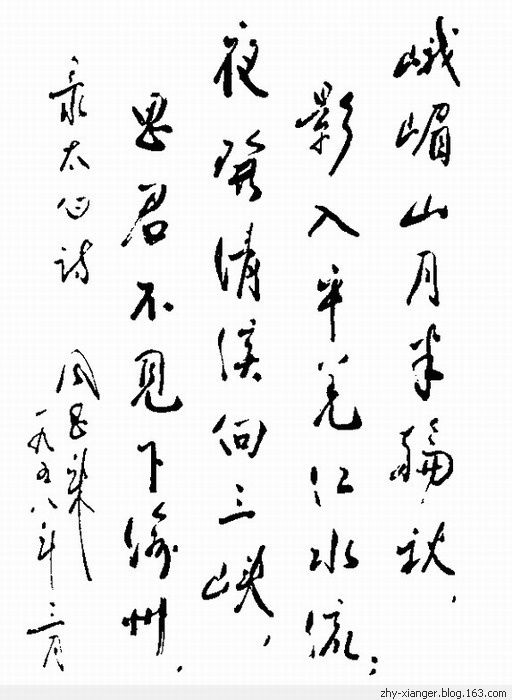 峨嵋山月半輪秋，
影入平羌江水流；
夜發清溪向三峽，
思君不見下渝州．
录太白詩
周恩來
一九五八年三月
zhy-xianger.blog.163.com